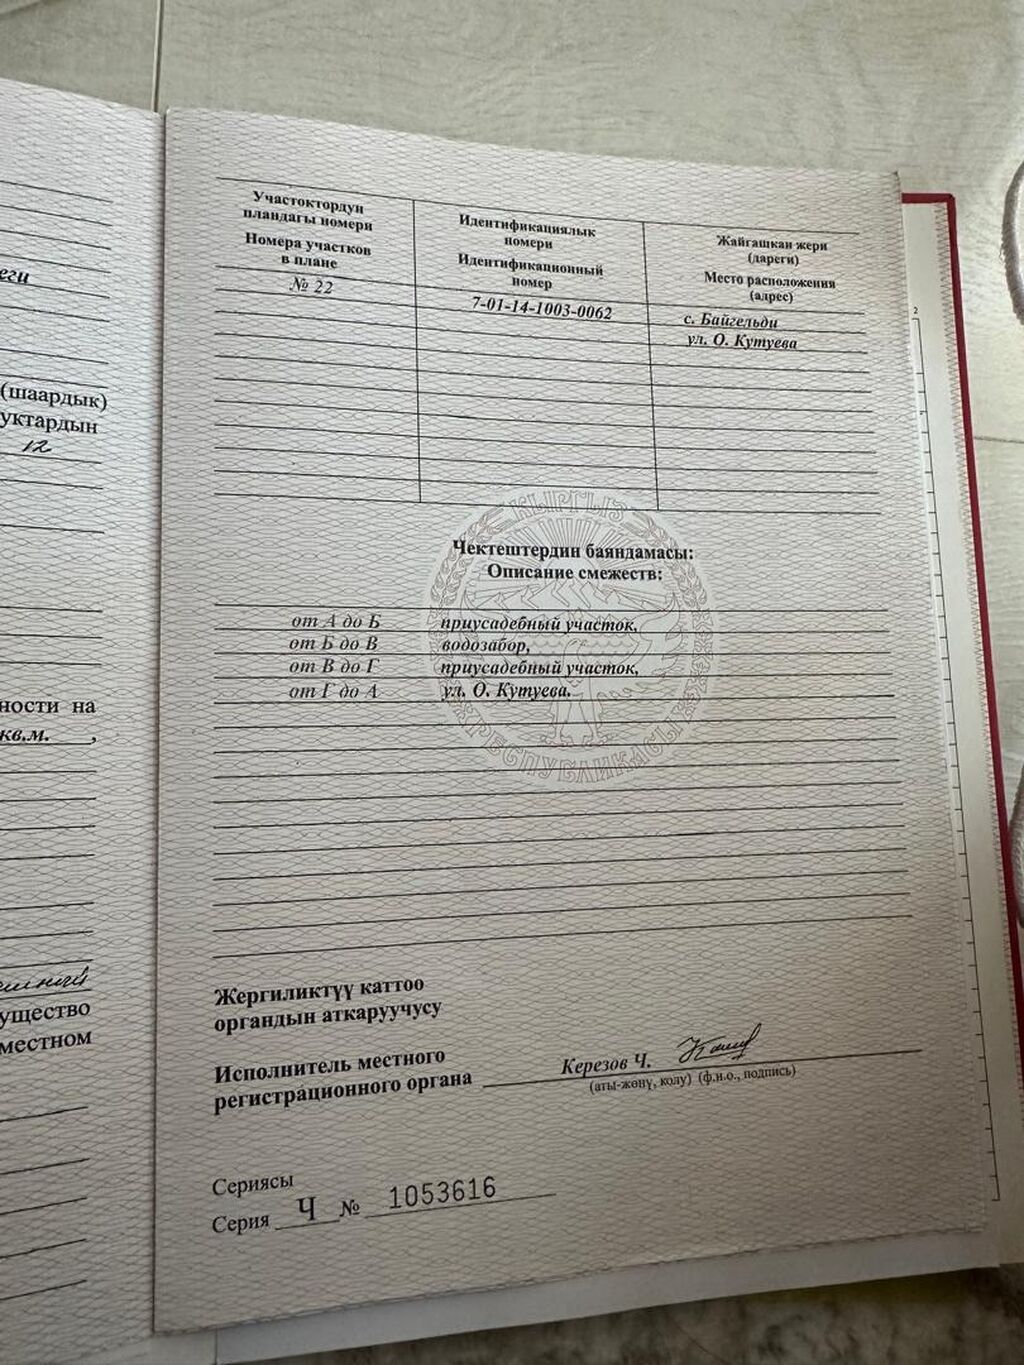 еги
(шаардык)
уктардын
12
ности на
кв.м. ,
ущество
местном
Участоктордун
пландагы номери
Номера участков
в плане
Идентификациялык
номери
Идентификационный
номер
Жайгашкан жери
(дареги)
Место расположения
(адрес)
№ 22
7-01-14-1003-0062
с. Байгельди
ул. О. Кутуева
КЫРГЫЗ
РЕСПУБЛИКАСЫ
Чектештердин баяндамасы:
Описание смежеств:
от А до Б приусадебный участок,
от Б до В водозабор,
от В до Г приусадебный участок,
от Г до А ул. О. Кутуева.
Жергиликтүү каттоо
органдын аткаруучусу
Исполнитель местного
регистрационного органа Керезов Ч.
(аты-жөнү, колу) (ф.и.о., подпись)
Сериясы
Серия Ч № 1053616
2